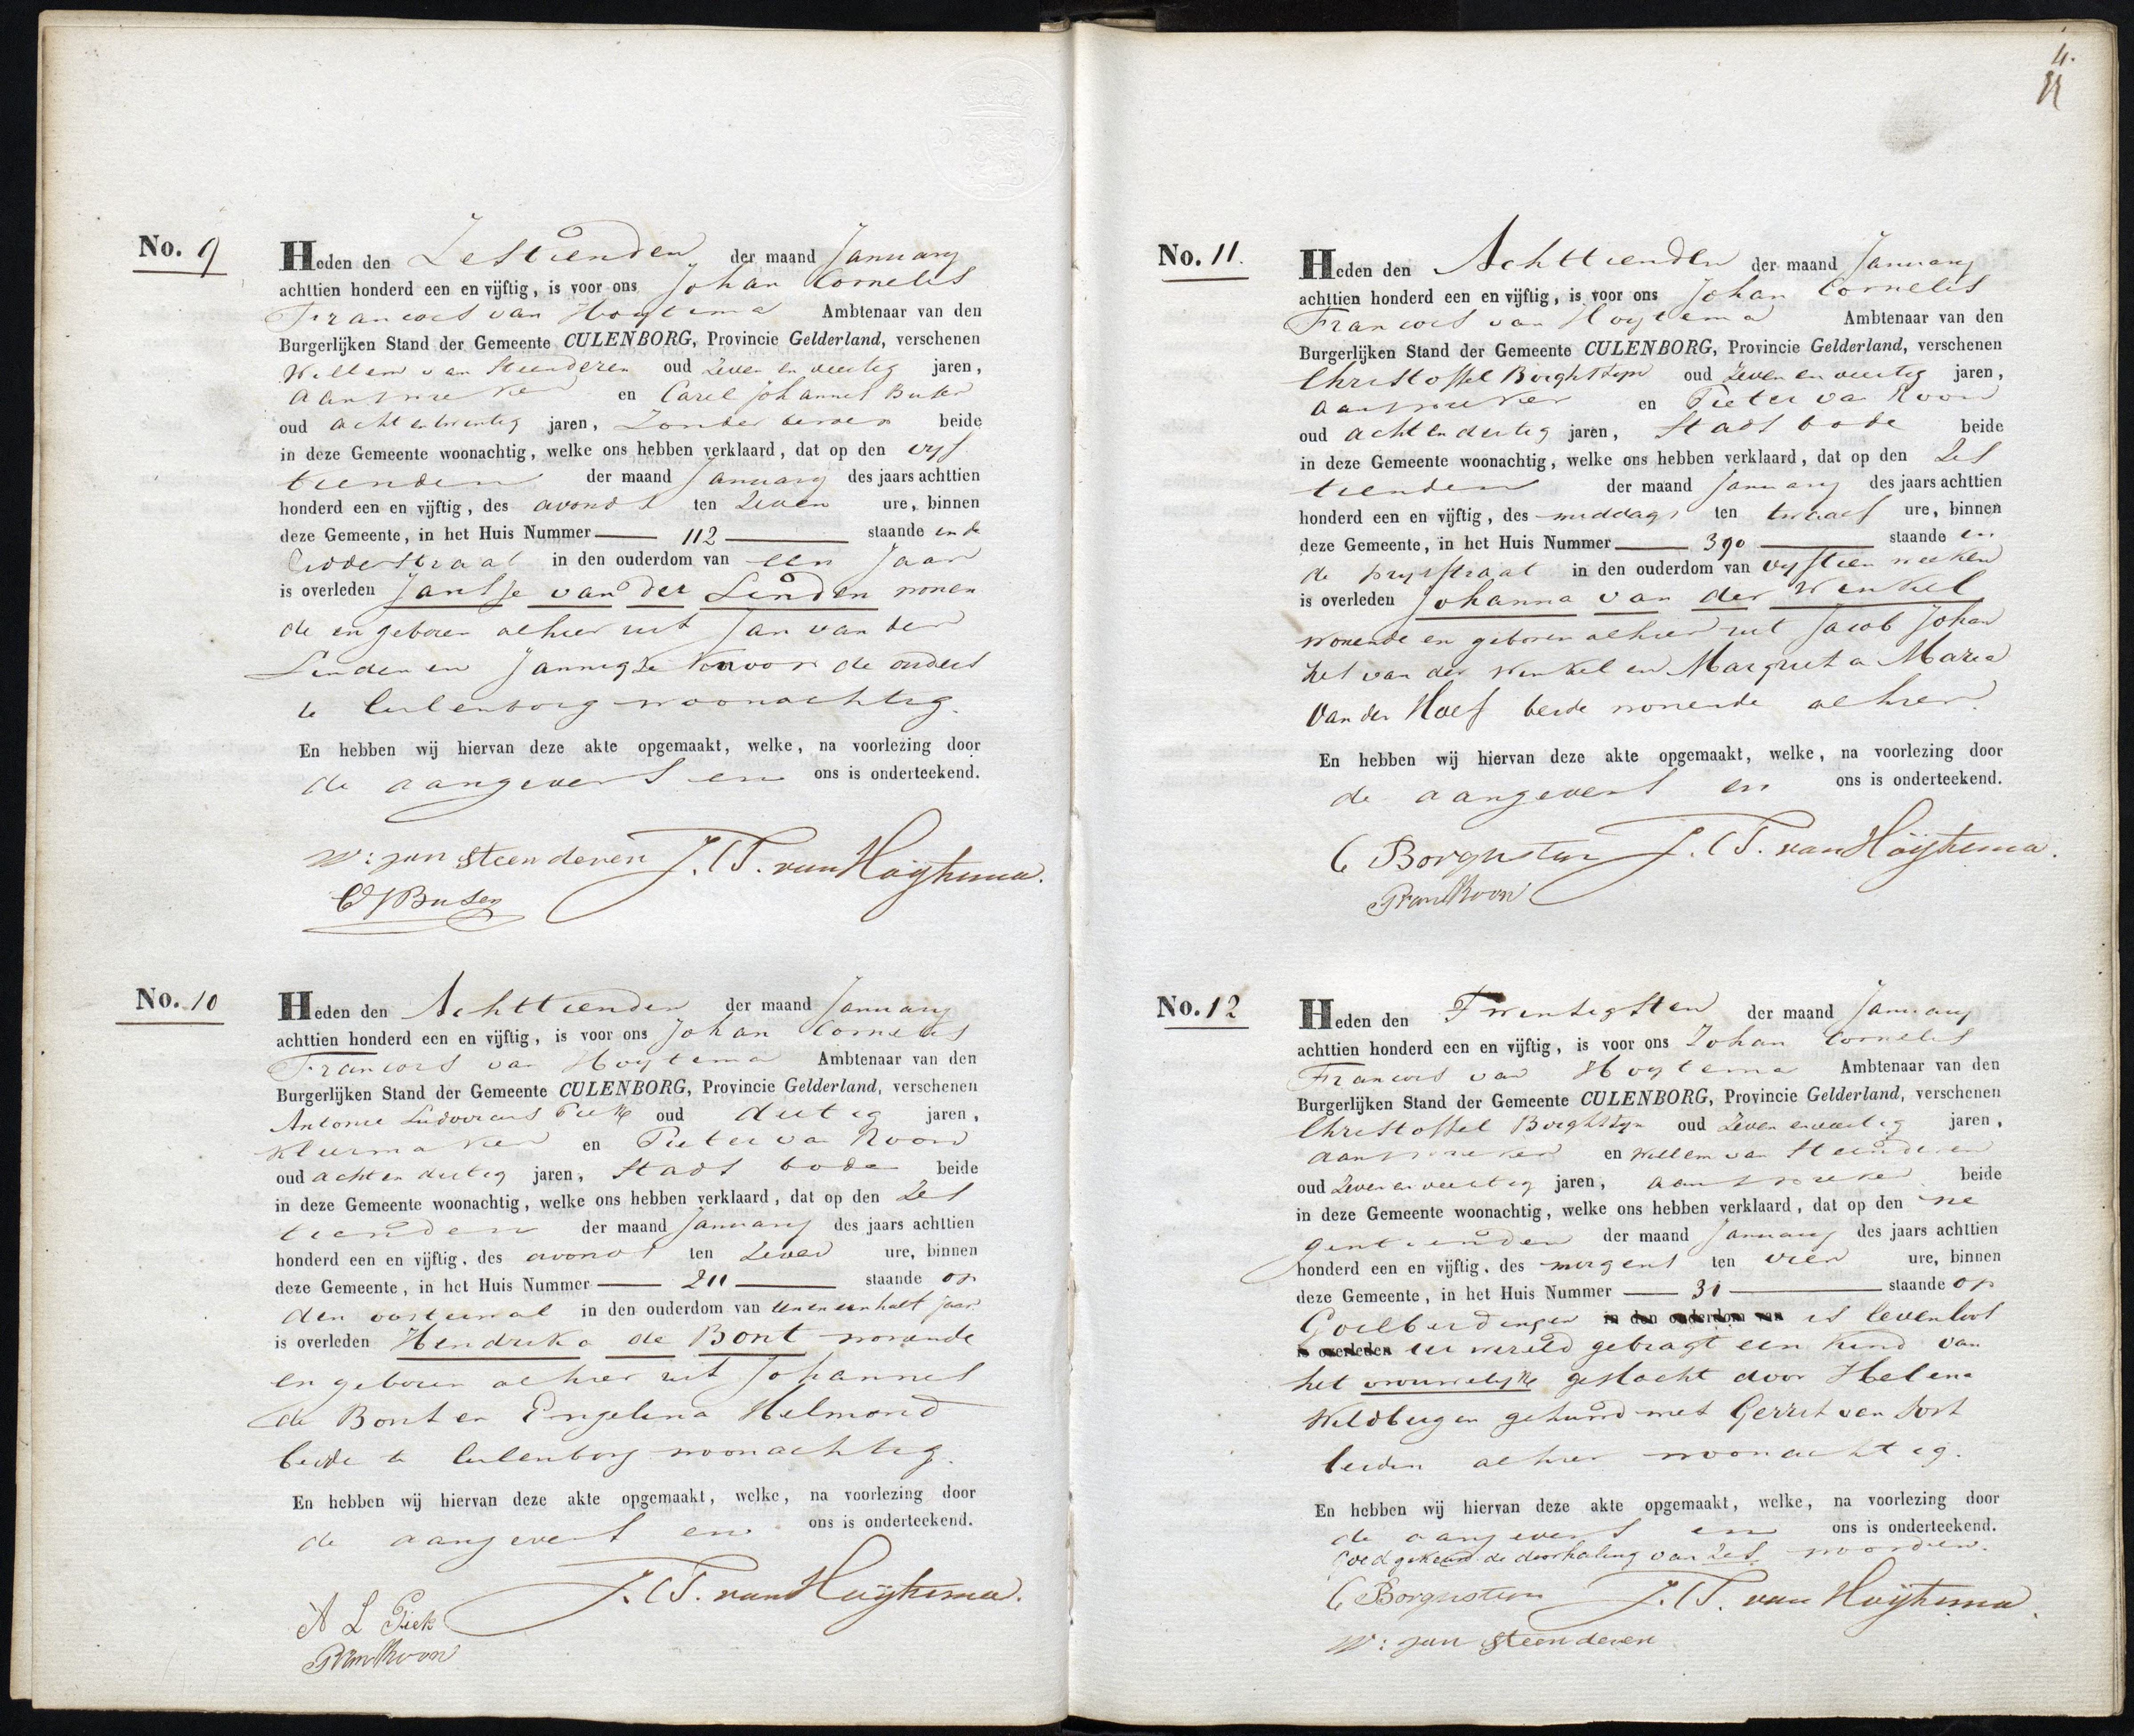 No. 9
Heden den Zestienden der maand January
achttien honderd een en vijftig, is voor ons Johan Cornelis
Francois van Hoytema Ambtenaar van den
Burgerlijken Stand der Gemeente CULENBORG, Provincie Gelderland, verschenen
Willem van Steenderen oud Zeven en veertig jaren,
aanspreker en Carel Johannes Buser
oud acht en twentig jaren, Zonder beroep beide
in deze Gemeente woonachtig, welke ons hebben verklaard, dat op den vyf
tienden der maand January des jaars achttien
honderd een en vijftig, des avonds ten Zeven ure, binnen
deze Gemeente, in het Huis Nummer 112 staande in de
straat in den ouderdom van een Jaar
is overleden Jantje van der Linden wonen
de en geboren alhier uit Jan van der
Linden en Jannigje de ouders
te Culenborg woonachtig.
En hebben wij hiervan deze akte opgemaakt, welke, na voorlezing door
de aangevers en ons is onderteekend.
W: van Steenderen J.C.F. van Hoÿtema.
CJ Buser
No. 10
Heden den Achttienden der maand January
achttien honderd een en vijftig, is voor ons Johan Cornelis
Francois van Hoytema Ambtenaar van den
Burgerlijken Stand der Gemeente CULENBORG, Provincie Gelderland, verschenen
Antonie Ludovicus Piek oud dertig jaren,
klermaker en Pieter van Roon
oud acht en dertig jaren, Stads bode beide
in deze Gemeente woonachtig, welke ons hebben verklaard, dat op den Zes
tienden der maand January des jaars achttien
honderd een en vijftig, des avonds ten Zeven ure, binnen
deze Gemeente, in het Huis Nummer 211 staande op
den oosterwal in den ouderdom van een en een half jaar
is overleden Hendrika de Bont wonende
en geboren alhier uit Johannes
de Bont en Engelina Helmond
beide te Culenborg woonachtig.
En hebben wij hiervan deze akte opgemaakt, welke, na voorlezing door
de aangevers en ons is onderteekend.
J.C.F. van Hoÿtema.
A L Piek
P van Roon
4.
No. 11.
Heden den Achttienden der maand January
achttien honderd een en vijftig, is voor ons Johan Cornelis
Francois van Hoytema Ambtenaar van den
Burgerlijken Stand der Gemeente CULENBORG, Provincie Gelderland, verschenen
Christoffel Borghstyn oud Zeven en veertig jaren,
aanspreker en Pieter van Roon
oud acht en dertig jaren, Stads bode beide
in deze Gemeente woonachtig, welke ons hebben verklaard, dat op den Zes
tienden der maand January des jaars achttien
honderd een en vijftig, des middags ten twaalf ure, binnen
deze Gemeente, in het Huis Nummer 390 staande in
de prysstraat in den ouderdom van vyftien weeken
is overleden Johanna van der Winkel
wonende en geboren alhier uit Jacob Johan
nes van der Winkel en Margreta Maria
van der Hoef beide wonende alhier.
En hebben wij hiervan deze akte opgemaakt, welke, na voorlezing door
de aangevers en ons is onderteekend.
C Borgnstein J.C.F. van Hoÿtema.
P van Roon
No. 12
Heden den Twentigsten der maand January
achttien honderd een en vijftig, is voor ons Johan Cornelis
Francois van Hoytema Ambtenaar van den
Burgerlijken Stand der Gemeente CULENBORG, Provincie Gelderland, verschenen
Christoffel Borghstyn oud Zeven en veertig jaren,
aanspreker en Willem van Steenderen
oud Zeven en veertig jaren, aanspreker beide
in deze Gemeente woonachtig, welke ons hebben verklaard, dat op den ne
gentienden der maand January des jaars achttien
honderd een en vijftig, des morgens ten vier ure, binnen
deze Gemeente, in het Huis Nummer 31 staande op
Goilberdingen in den ouderdom van is levenloos
is overleden ter wereld gebragt een kind van
het vrouwelyk geslacht door Helena
Wildbergen gehuwd met Gerrit van Dort
beiden alhier woonachtig.
En hebben wij hiervan deze akte opgemaakt, welke, na voorlezing door
de aangevers en ons is onderteekend.
Goed gekeurd de doorhaling van Zes woorden.
C Borgnstein J.C.F. van Hoÿtema.
W: van Steenderen